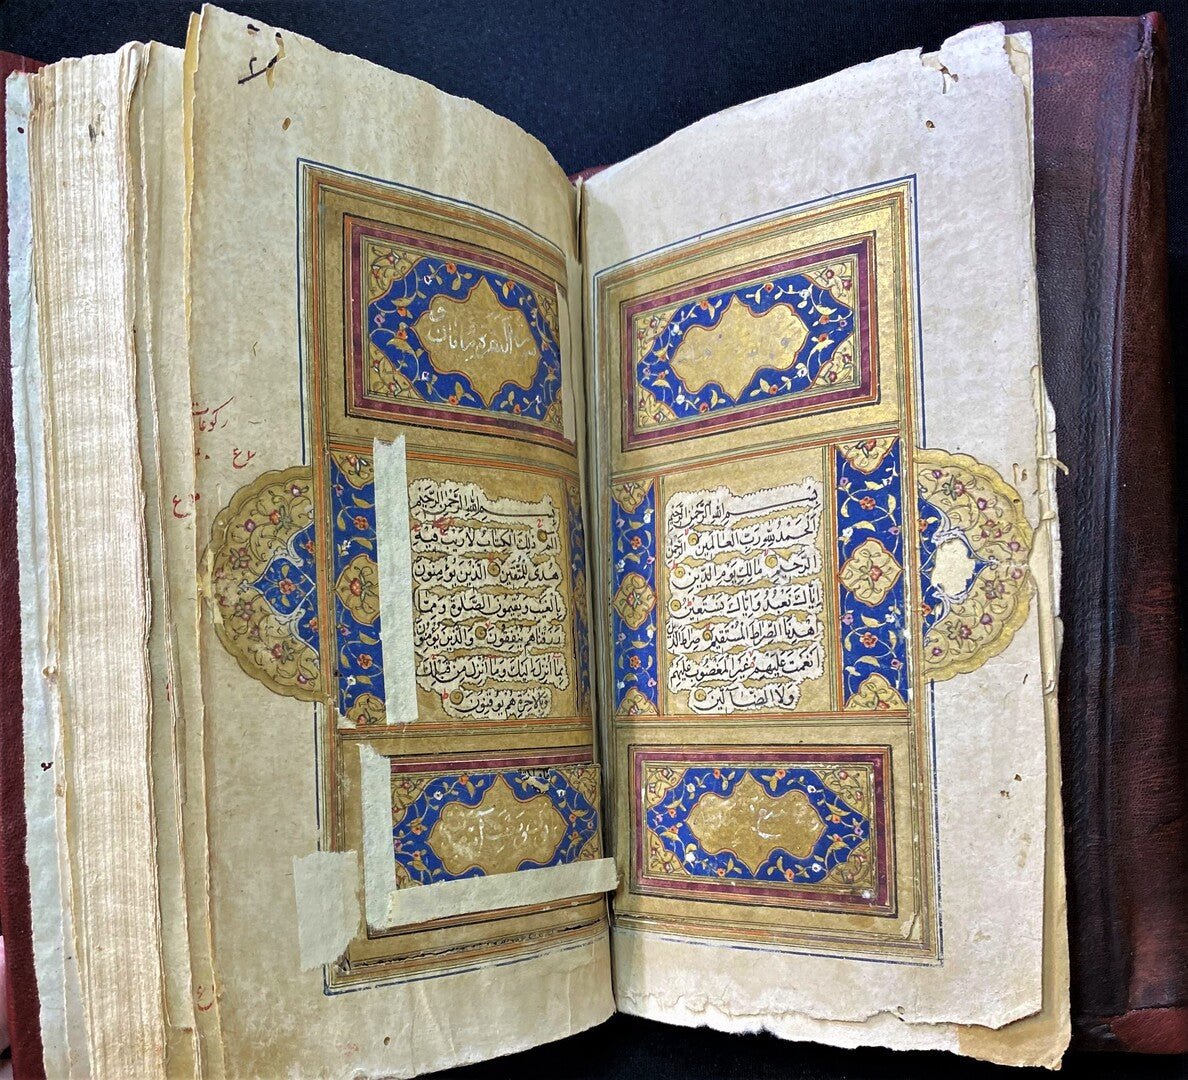 بسم الله الرحمن الرحيم
الحمد لله رب العالمين الرحمن
الرحيم مالك يوم الدين
اياك نعبد واياك نستعين
اهدنا الصراط المستقيم صراط الذين
انعمت عليهم غير المغضوب عليهم
ولا الضالين
٢
البقرة مائتان و
بسم الله الرحمن الرحيم
الم ذلك الكتاب لا ريب فيه
هدى للمتقين الذين يؤمنون
بالغيب ويقيمون الصلوة ومما
رزقناهم ينفقون والذين يؤمنون
بما انزل اليك وما انزل من قبلك
وبالاخرة هم يوقنون
ركوعات